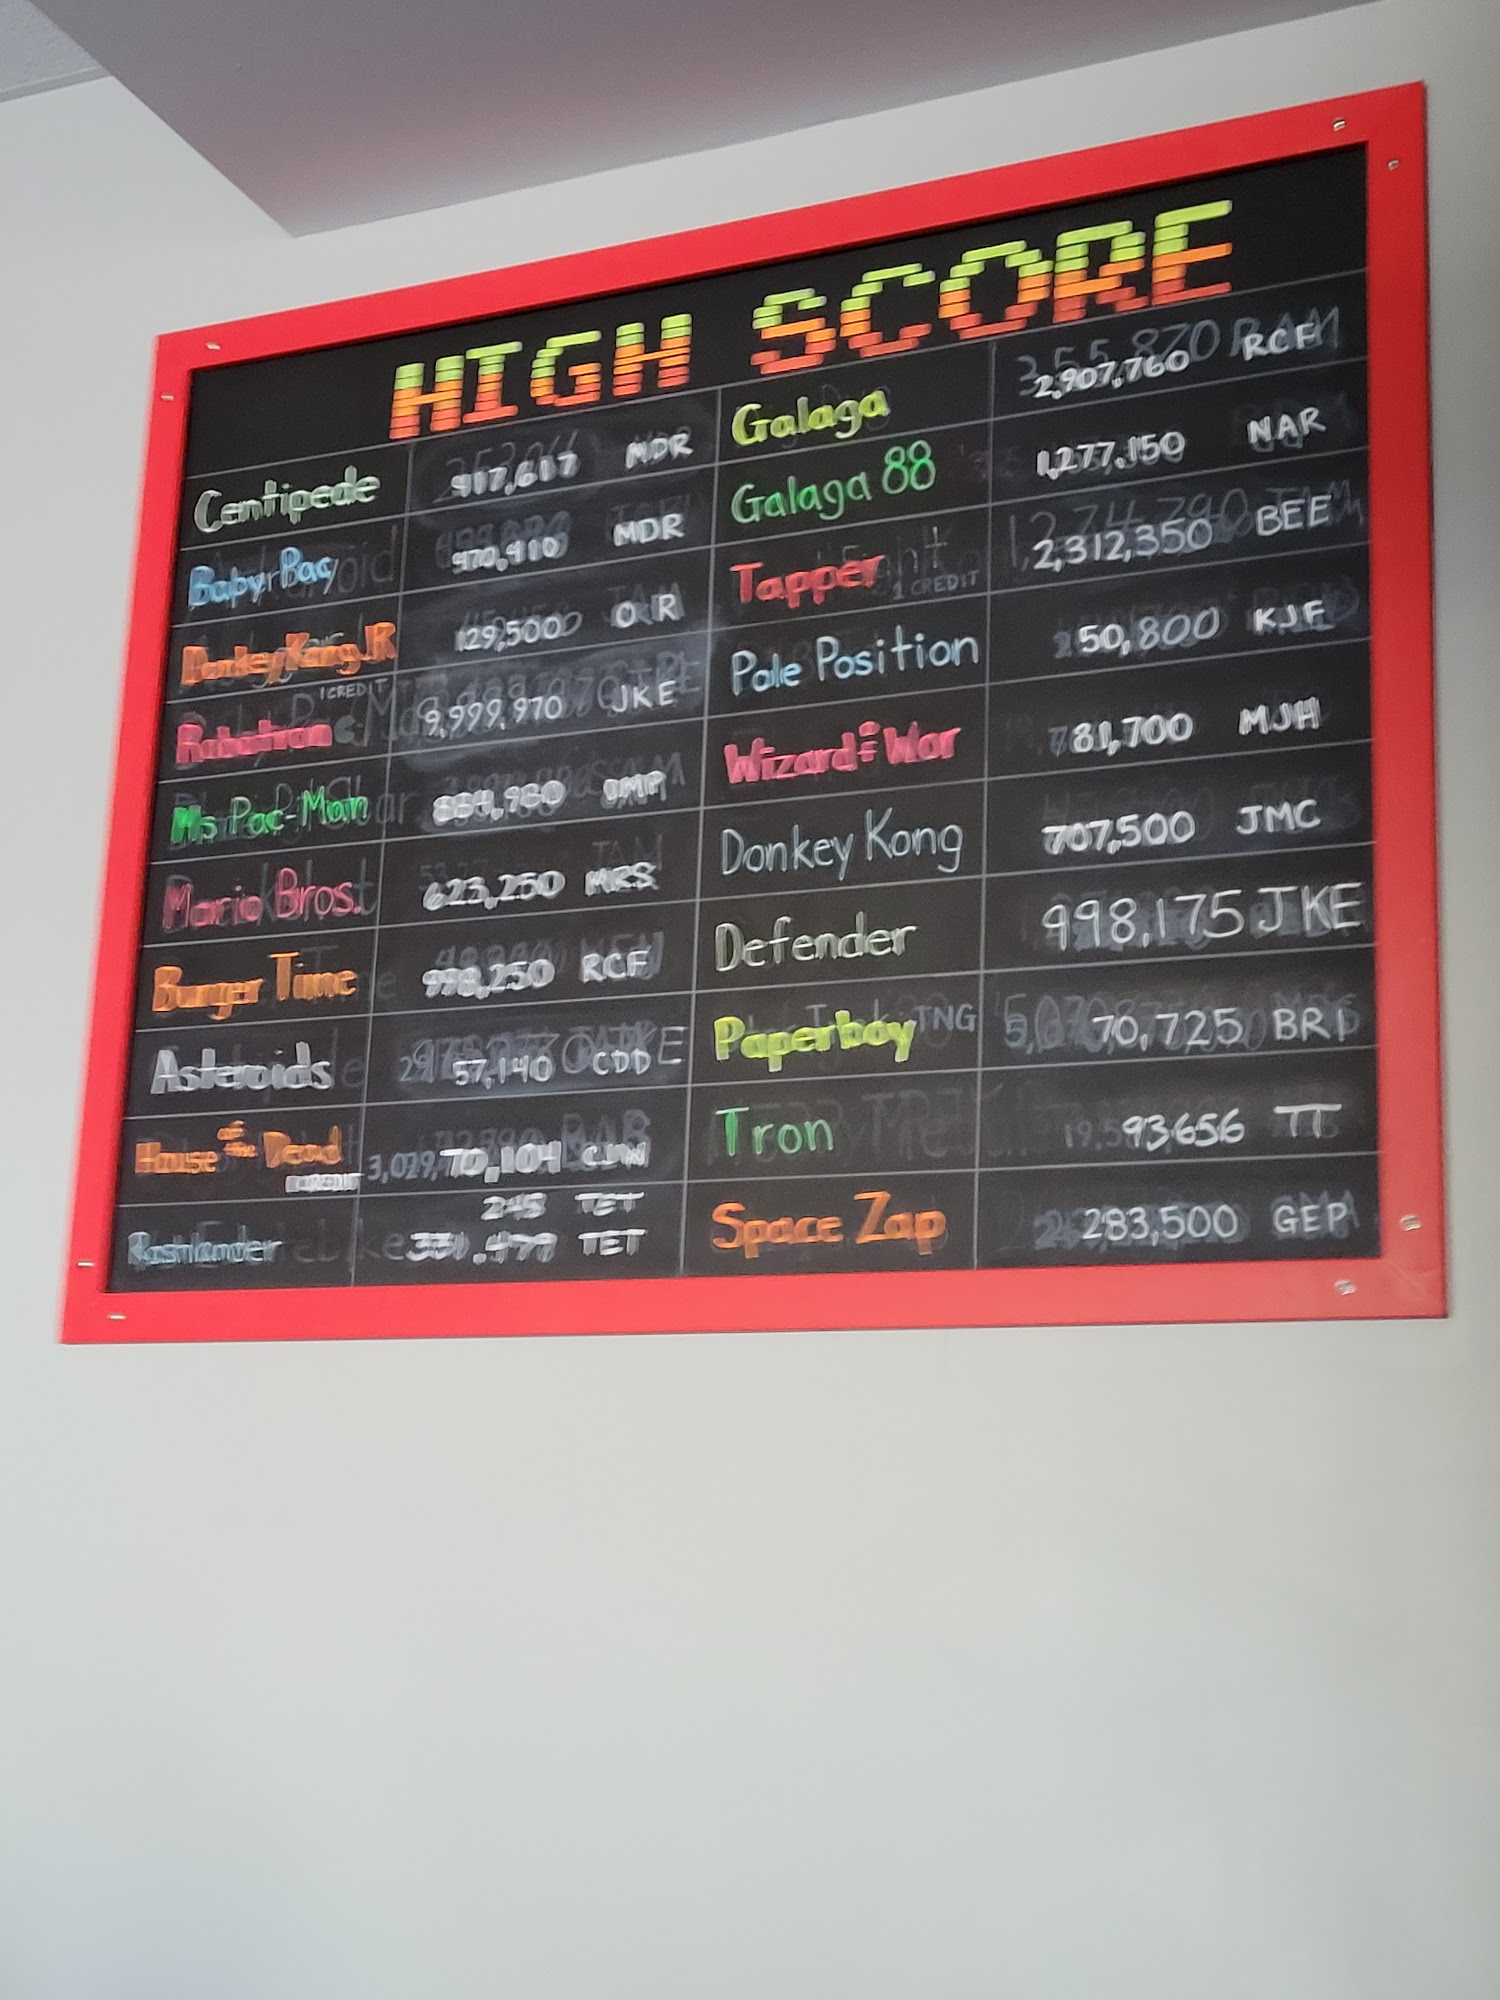 HIGH SCORE
Centipede 917,617 MDR
Baby Pac 970,910 MDR
Donkey Kong JR 129,500
1 CREDIT
Robotron 9,999,970 JKE
Ms Pac-Man
Mario Bros. 623,250 MRS
Burger Time 998,250 RCF
Asteroids 57,140 CDD
House of the Dead 70,104 CJW
1 CREDIT
245 TET
TET
Galaga 2,907,760 RCF
Galaga 88 1,277,150 NAR
Tapper 2,312,350 BEE
1 CREDIT
Pole Position 50,800 KJF
Wizard of Wor 81,700 MJH
Donkey Kong 707,500 JMC
Defender 998,175 JKE
Paperboy 70,725 BRI
Tron 93656 TT
Space Zap 283,500 GEP